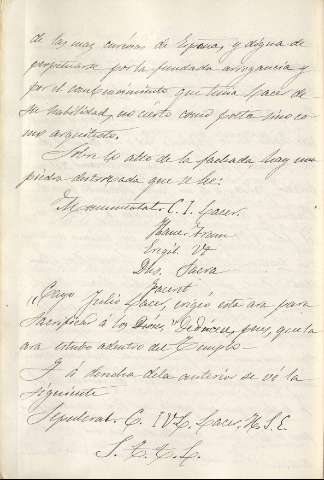 de las mas curiosas de España, y digna de
perpetuarse por la fundada arrogancia y
por el conocimiento que tenia Lacer de
su habilidad, no cierto como poeta sino co-
mo arquitecto.
Sobre lo alto de la fachada hay una
piedra destrozada que se lee:
C. I. Lacer.
Hanc Aram
Erigit Vt
Dis. Sacra
Faceret
"Cayo Julio Lacer, erigió esta ara para
Sacrificar á los Dioses." Dedúcese, pues, que la
ara estubo adentro del Templo
Y á derecha de la anterior se vé la
siguiente
C. IVL. Lacer. H. S. E
S. T. T. L.